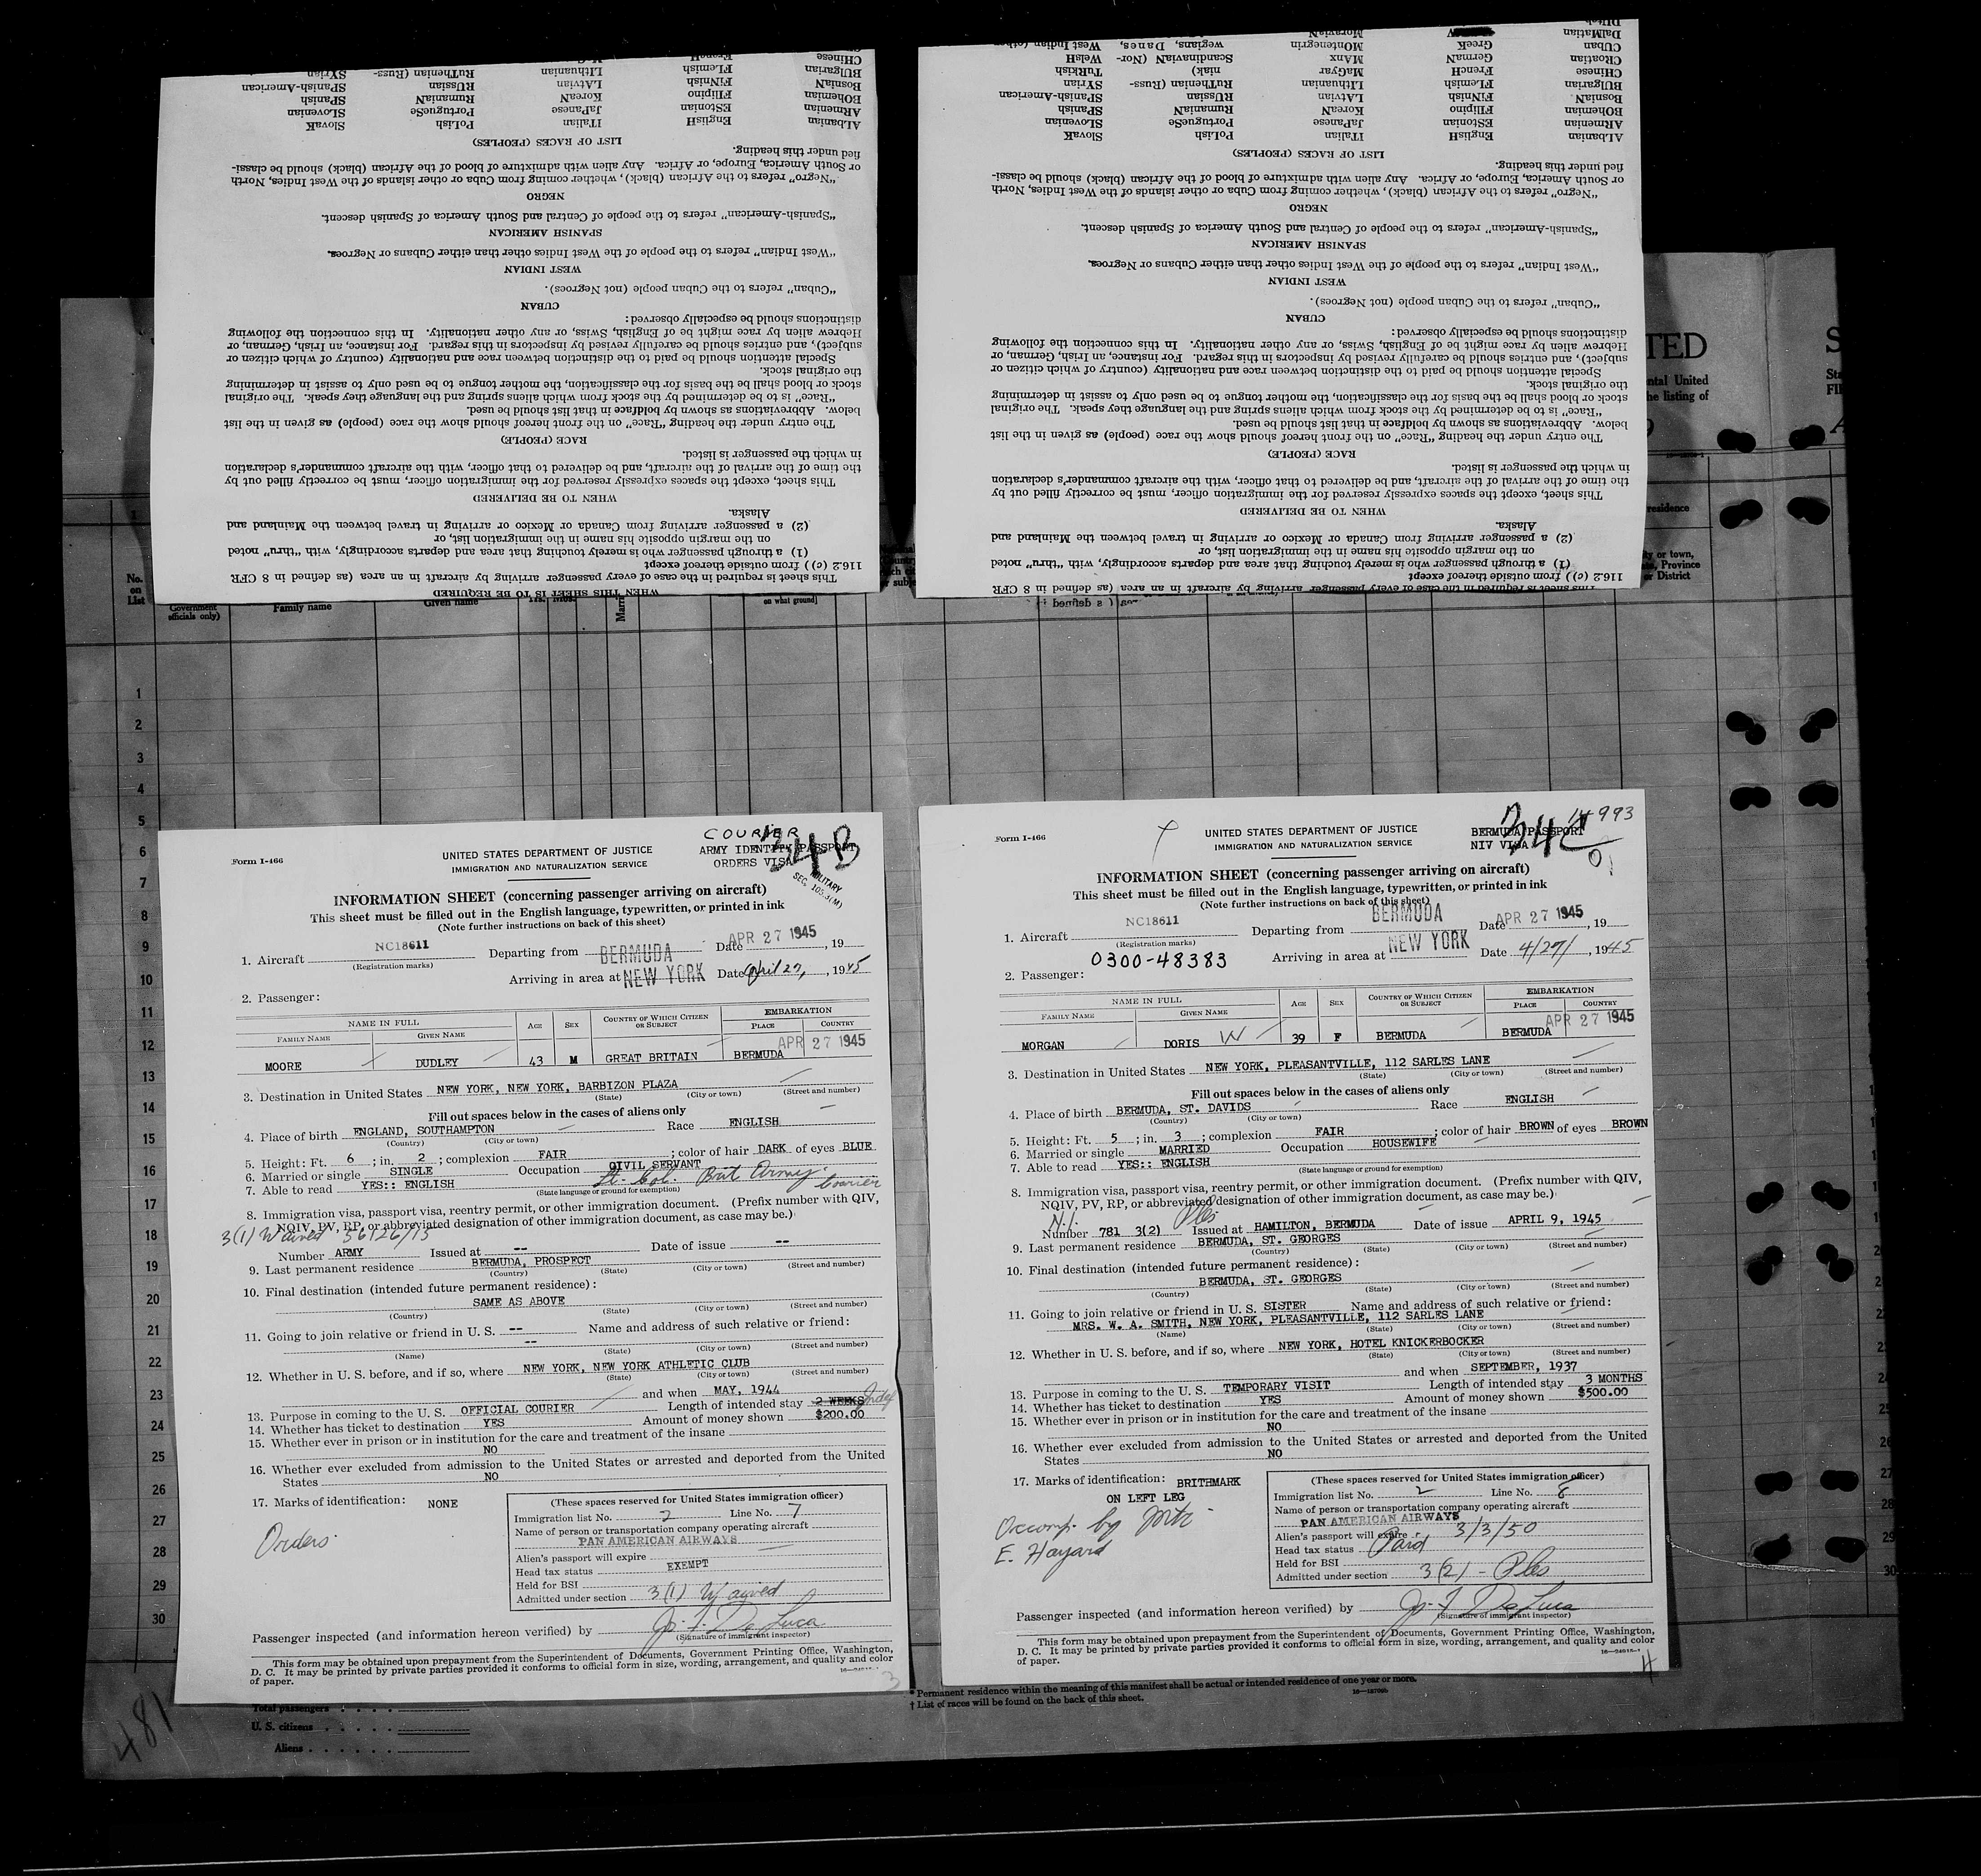 Form I-466
COURIER
ARMY IDENTITY PASSPORT
ORDERS VISA
34B
MILITARY
SEC. 105.3(M)
UNITED STATES DEPARTMENT OF JUSTICE
IMMIGRATION AND NATURALIZATION SERVICE
INFORMATION SHEET (concerning passenger arriving on aircraft)
This sheet must be filled out in the English language, typewritten, or printed in ink
(Note further instructions on back of this sheet)
1. Aircraft NC18611 Departing from BERMUDA Date APR 27 1945, 19
(Registration marks)
Arriving in area at NEW YORK Date April 27, 1945
2. Passenger:
NAME IN FULL AGE SEX COUNTRY OF WHICH CITIZEN OR SUBJECT EMBARKATION
FAMILY NAME GIVEN NAME PLACE COUNTRY
APR 27 1945
MOORE DUDLEY 43 M GREAT BRITAIN BERMUDA
3. Destination in United States NEW YORK, NEW YORK, BARBIZON PLAZA
(State) (City or town) (Street and number)
Fill out spaces below in the cases of aliens only
4. Place of birth ENGLAND, SOUTHAMPTON Race ENGLISH
(Country) (City or town)
5. Height: Ft. 6; in. 2; complexion FAIR; color of hair DARK of eyes BLUE
6. Married or single SINGLE Occupation CIVIL SERVANT
Lt. Col. Brit Army. Courier
7. Able to read YES:: ENGLISH
(State language or ground for exemption)
8. Immigration visa, passport visa, reentry permit, or other immigration document. (Prefix number with QIV, NQIV, PV, RP, or abbreviated designation of other immigration document, as case may be.)
3(1) Waived 56126/15
Number ARMY Issued at -- Date of issue --
9. Last permanent residence BERMUDA, PROSPECT
(Country) (State) (City or town) (Street and number)
10. Final destination (intended future permanent residence):
SAME AS ABOVE
(Country) (State) (City or town) (Street and number)
11. Going to join relative or friend in U. S. -- Name and address of such relative or friend:
--
(Name) (State) (City or town) (Street and number)
12. Whether in U. S. before, and if so, where NEW YORK, NEW YORK ATHLETIC CLUB
(State) (City or town) (Street and number)
and when MAY, 1944
13. Purpose in coming to the U. S. OFFICIAL COURIER Length of intended stay 2 WEEKS Indef
14. Whether has ticket to destination YES Amount of money shown $200.00
15. Whether ever in prison or in institution for the care and treatment of the insane
NO
16. Whether ever excluded from admission to the United States or arrested and deported from the United
States NO
17. Marks of identification: NONE
Orders
(These spaces reserved for United States immigration officer)
Immigration list No. 2 Line No. 7
Name of person or transportation company operating aircraft
PAN AMERICAN AIRWAYS
Alien's passport will expire
Head tax status EXEMPT
Held for BSI
Admitted under section 3(1) Waived
Passenger inspected (and information hereon verified) by Jo. F. De Luca
(Signature of immigrant inspector)
This form may be obtained upon prepayment from the Superintendent of Documents, Government Printing Office, Washington,
D. C. It may be printed by private parties provided it conforms to official form in size, wording, arrangement, and quality and color
of paper.
3
Form I-466
BERMUDA PASSPORT
NIV VISA
34C
14993
UNITED STATES DEPARTMENT OF JUSTICE
IMMIGRATION AND NATURALIZATION SERVICE
INFORMATION SHEET (concerning passenger arriving on aircraft)
This sheet must be filled out in the English language, typewritten, or printed in ink
(Note further instructions on back of this sheet)
1. Aircraft NC18611 Departing from BERMUDA Date APR 27 1945, 19
(Registration marks)
0300-48383 Arriving in area at NEW YORK Date 4/27/, 1945
2. Passenger:
NAME IN FULL AGE SEX COUNTRY OF WHICH CITIZEN OR SUBJECT EMBARKATION
FAMILY NAME GIVEN NAME PLACE COUNTRY
APR 27 1945
MORGAN DORIS W 39 F BERMUDA BERMUDA
3. Destination in United States NEW YORK, PLEASANTVILLE, 112 SARLES LANE
(State) (City or town) (Street and number)
Fill out spaces below in the cases of aliens only
4. Place of birth BERMUDA, ST. DAVIDS Race ENGLISH
(Country) (City or town)
5. Height: Ft. 5; in. 3; complexion FAIR; color of hair BROWN of eyes BROWN
6. Married or single MARRIED Occupation HOUSEWIFE
7. Able to read YES:: ENGLISH
(State language or ground for exemption)
8. Immigration visa, passport visa, reentry permit, or other immigration document. (Prefix number with QIV,
NQIV, PV, RP, or abbreviated designation of other immigration document, as case may be.)
Number 781 3(2) Ples Issued at HAMILTON, BERMUDA Date of issue APRIL 9, 1945
9. Last permanent residence BERMUDA, ST. GEORGES
(Country) (State) (City or town) (Street and number)
10. Final destination (intended future permanent residence):
BERMUDA, ST. GEORGES
(Country) (State) (City or town) (Street and number)
11. Going to join relative or friend in U. S. SISTER Name and address of such relative or friend:
MRS. W. A. SMITH, NEW YORK, PLEASANTVILLE, 112 SARLES LANE
(Name) (State) (City or town) (Street and number)
12. Whether in U. S. before, and if so, where NEW YORK, HOTEL KNICKERBOCKER
(State) (City or town) (Street and number)
and when SEPTEMBER, 1937
13. Purpose in coming to the U. S. TEMPORARY VISIT Length of intended stay 3 MONTHS
14. Whether has ticket to destination YES Amount of money shown $500.00
15. Whether ever in prison or in institution for the care and treatment of the insane
NO
16. Whether ever excluded from admission to the United States or arrested and deported from the United
States NO
17. Marks of identification: BRITHMARK
ON LEFT LEG
Occomp. by
E. Hayard
(These spaces reserved for United States immigration officer)
Immigration list No. 2 Line No. 8
Name of person or transportation company operating aircraft
PAN AMERICAN AIRWAYS
Alien's passport will expire 3/3/50
Head tax status Paid
Held for BSI
Admitted under section 3(2) - Ples
Passenger inspected (and information hereon verified) by Jo. F. De Luca
(Signature of immigrant inspector)
This form may be obtained upon prepayment from the Superintendent of Documents, Government Printing Office, Washington,
D. C. It may be printed by private parties provided it conforms to official form in size, wording, arrangement, and quality and color
of paper.
4
WHEN THIS SHEET IS TO BE REQUIRED
This sheet is required in the case of every passenger arriving by aircraft in an area (as defined in 8 CFR
116.2 (c)) from outside thereof except
(1) a through passenger who is merely touching that area and departs accordingly, with "thru" noted
on the margin opposite his name in the immigration list, or
(2) a passenger arriving from Canada or Mexico or arriving in travel between the Mainland and
Alaska.
WHEN TO BE DELIVERED
This sheet, except the spaces expressly reserved for the immigration officer, must be correctly filled out by
the time of the arrival of the aircraft, and be delivered to that officer, with the aircraft commander's declaration
in which the passenger is listed.
RACE (PEOPLE)
The entry under the heading "Race" on the front hereof should show the race (people) as given in the list
below. Abbreviations as shown by boldface in that list should be used.
"Race" is to be determined by the stock from which aliens spring and the language they speak. The original
stock or blood shall be the basis for the classification, the mother tongue to be used only to assist in determining
the original stock.
Special attention should be paid to the distinction between race and nationality (country of which citizen or
subject), and entries should be carefully revised by inspectors in this regard. For instance, an Irish, German, or
Hebrew alien by race might be of English, Swiss, or any other nationality. In this connection the following
distinctions should be especially observed:
CUBAN
"Cuban" refers to the Cuban people (not Negroes).
WEST INDIAN
"West Indian" refers to the people of the West Indies other than either Cubans or Negroes.
SPANISH AMERICAN
"Spanish-American" refers to the people of Central and South America of Spanish descent.
NEGRO
"Negro" refers to the African (black), whether coming from Cuba or other islands of the West Indies, North
or South America, Europe, or Africa. Any alien with admixture of blood of the African (black) should be classi-
fied under this heading.
LIST OF RACES (PEOPLES)
ALbanian EnglisH ITalian PoLish SlovaK
ARmenian EStonian JaPanese PortugueSe SLovenian
BOhemian FIlipino KoreaN RumaniaN SPanish
BosniaN FiNnish LAtvian RUssian SPanish-American
BUlgarian FLemish LIthuanian RuThenian (Russ- SYrian
CHinese FrencH
This sheet is required in the case of every passenger arriving by aircraft in an area (as defined in 8 CFR
116.2 (c)) from outside thereof except
(1) a through passenger who is merely touching that area and departs accordingly, with "thru" noted
on the margin opposite his name in the immigration list, or
(2) a passenger arriving from Canada or Mexico or arriving in travel between the Mainland and
Alaska.
WHEN TO BE DELIVERED
This sheet, except the spaces expressly reserved for the immigration officer, must be correctly filled out by
the time of the arrival of the aircraft, and be delivered to that officer, with the aircraft commander's declaration
in which the passenger is listed.
RACE (PEOPLE)
The entry under the heading "Race" on the front hereof should show the race (people) as given in the list
below. Abbreviations as shown by boldface in that list should be used.
"Race" is to be determined by the stock from which aliens spring and the language they speak. The original
stock or blood shall be the basis for the classification, the mother tongue to be used only to assist in determining
the original stock.
Special attention should be paid to the distinction between race and nationality (country of which citizen or
subject), and entries should be carefully revised by inspectors in this regard. For instance, an Irish, German, or
Hebrew alien by race might be of English, Swiss, or any other nationality. In this connection the following
distinctions should be especially observed:
CUBAN
"Cuban" refers to the Cuban people (not Negroes).
WEST INDIAN
"West Indian" refers to the people of the West Indies other than either Cubans or Negroes.
SPANISH AMERICAN
"Spanish-American" refers to the people of Central and South America of Spanish descent.
NEGRO
"Negro" refers to the African (black), whether coming from Cuba or other islands of the West Indies, North
or South America, Europe, or Africa. Any alien with admixture of blood of the African (black) should be classi-
fied under this heading.
LIST OF RACES (PEOPLES)
ALbanian EnglisH ITalian PoLish SlovaK
ARmenian EStonian JaPanese PortugueSe SLovenian
BOhemian FIlipino KoreaN RumaniaN SPanish
BosniaN FiNnish LAtvian RUssian SPanish-American
BUlgarian FLemish LIthuanian RuThenian (Russ- SYrian
CHinese FrencH MaGyar niak) TuRkish
CRoatian GermaN MAnx ScandinaviaN (Nor- WelsH
CUban GreeK MOntenegrin wegians, Danes, West Indian (other
DalMatian MoraviaN
No. on List
Government officials only)
Family name
Given name
on what ground]
TED
ental United
he listing of
residence
ty or town,
Province
or District
1
2
3
4
5
6
7
8
9
10
11
12
13
14
15
16
17
18
19
20
21
22
23
24
25
26
27
28
29
30
481
Total passengers
U. S. citizens
Aliens
* Permanent residence within the meaning of this manifest shall be actual or intended residence of one year or more.
† List of races will be found on the back of this sheet.